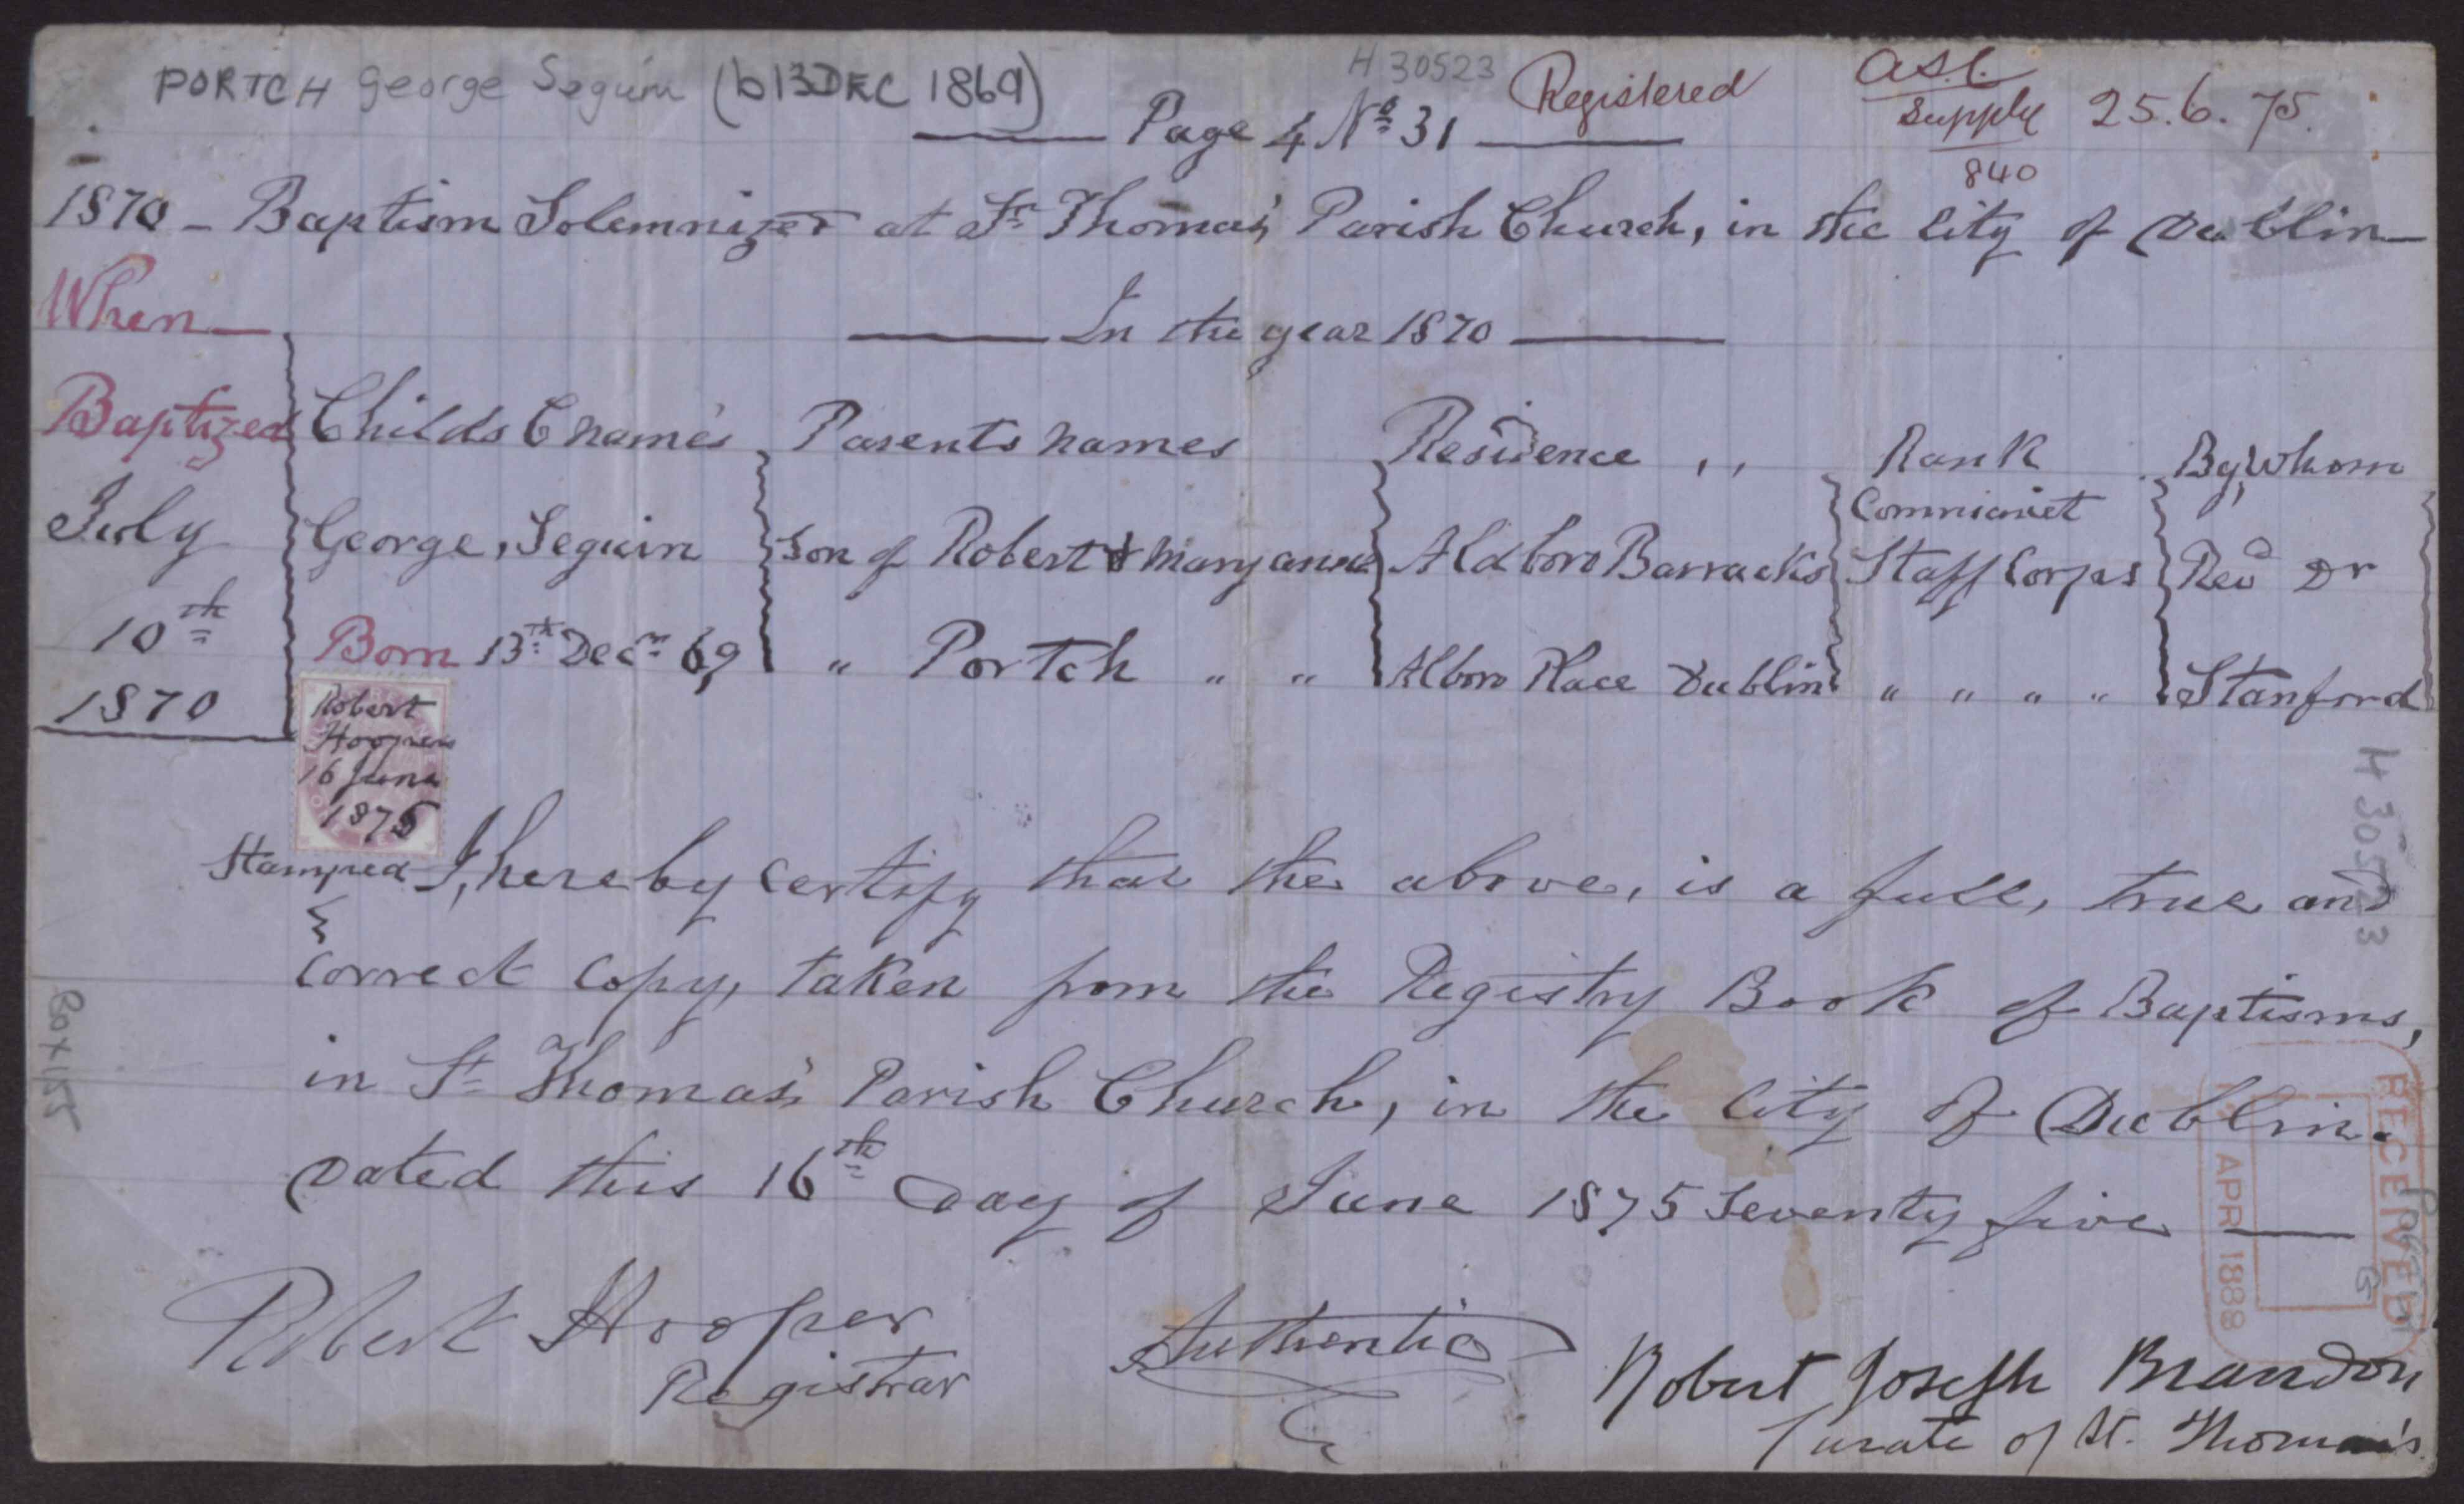 PORTCH George Seguin (b 13 DEC 1869)
H 30523
Registered
Supply
840
25.6.75.
Page 4 No 31
1870 - Baptism Solemnized at St Thomas's Parish Church, in the City of Dublin
When
In the year 1870
Baptized Childs C names Parents names Residence ,, Rank By, Whom
July George, Seguin Son of Robert & Maryanne Aldboro Barracks Commisriet Staff Corps Revd Dr
10th Born 13th Decr 69 " Portch " " Alboro Place Dublin " " " " Stanford
1870
Robert
Hooper
16 June
1875
Stamped I, hereby Certify that the above, is a full, true and
correct Copy, taken from the Registry Book of Baptisms,
in St Thomas's Parish Church, in the City of Dublin.
Dated this 16th Day of June 1875 Seventy five
Robert Hooper
Registrar
Authentic
Robert Joseph Brandon
Curate of St. Thomas's
H 30523
Box 155
RECEIVED
APR 1888